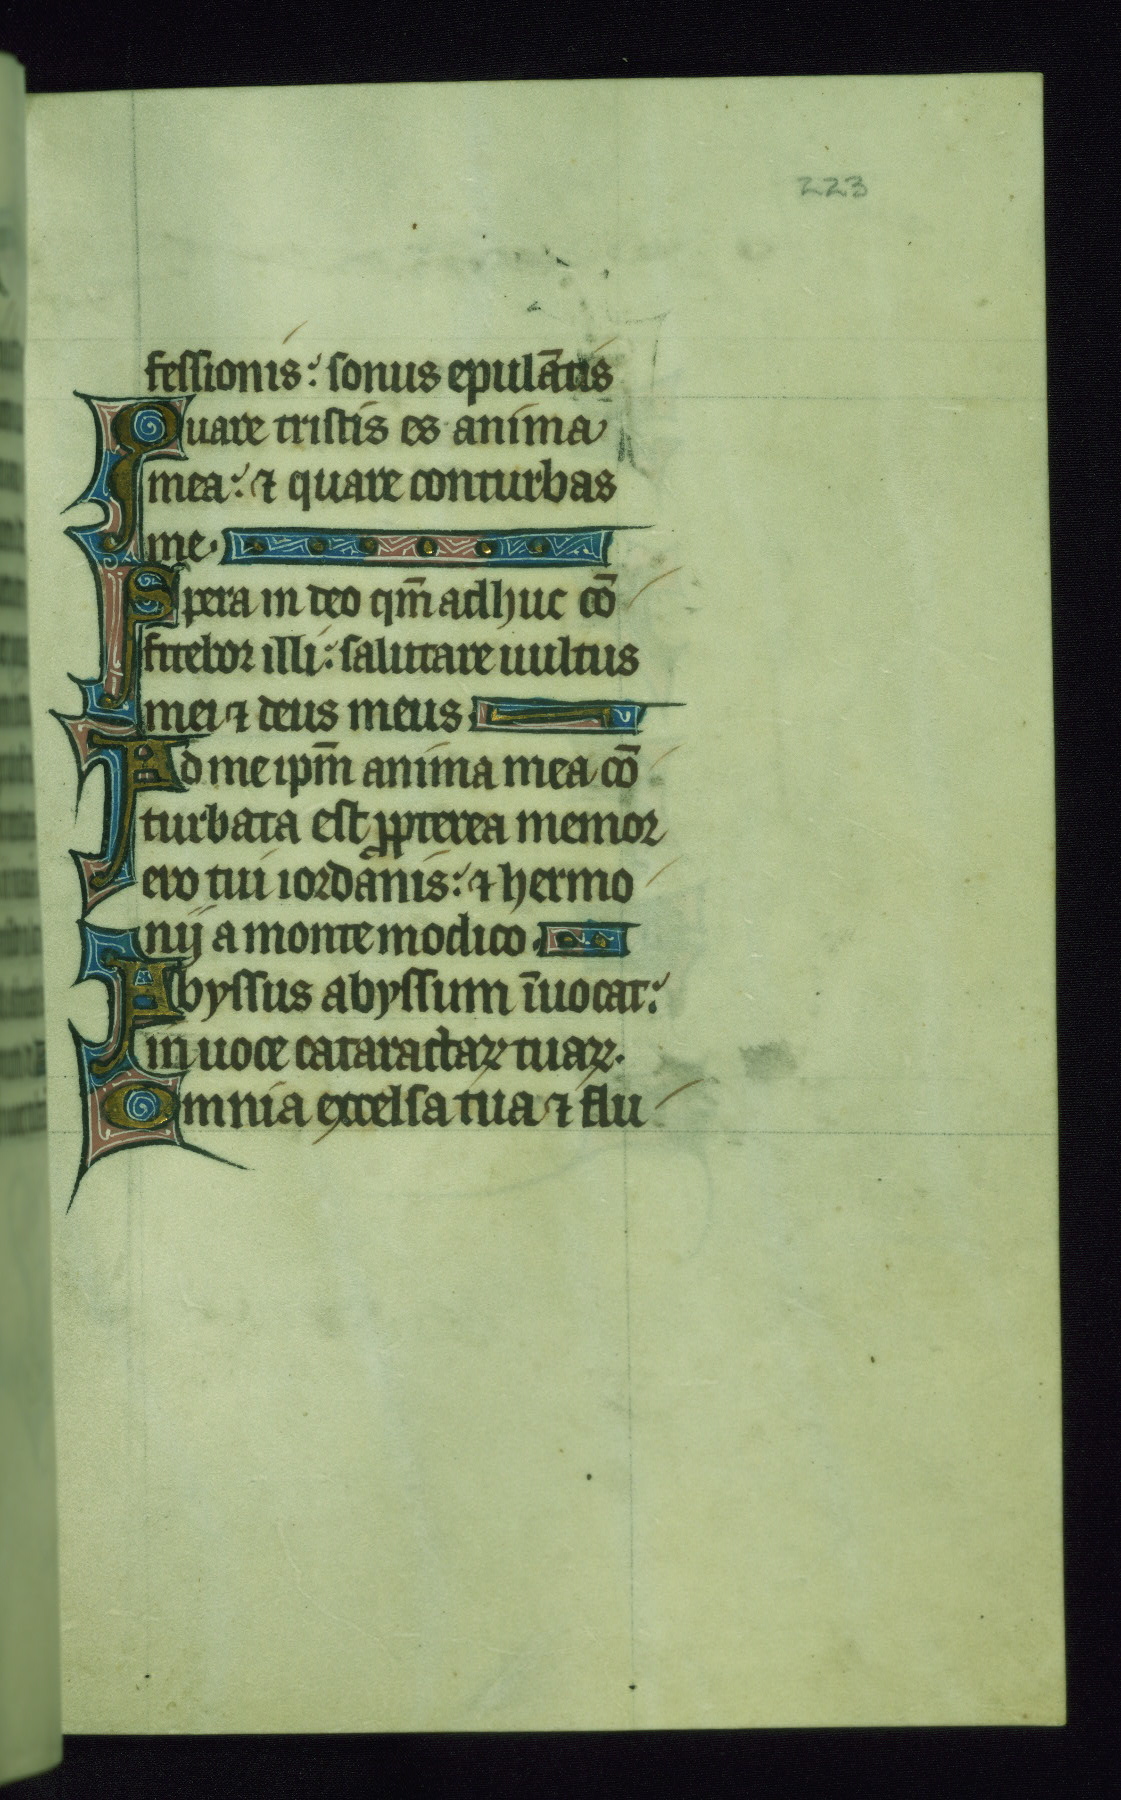 223
fessionis: sonus epulātis
Quare tristis es anima
mea: ⁊ quare conturbas
me.
Spera in deo qm̄ adhuc cō
fitebor illi: salutare uultus
mei ⁊ deus meus
Ad me ipm̄ anima mea cō
turbata est ꝓpterea memor
ero tui iordanis: ⁊ hermo
nij a monte modico.
Abyssus abyssum īuocat:
in uoce cataractaꝝ tuaꝝ.
Omnia excelsa tua ⁊ flu